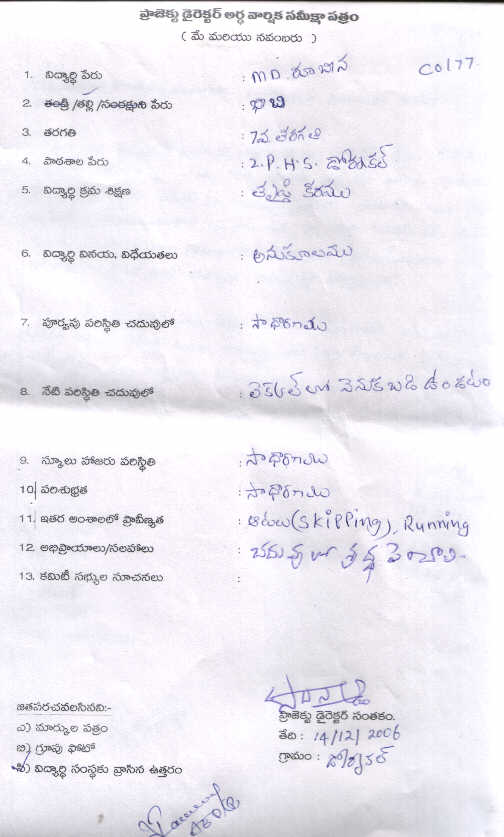 ప్రాజెక్టు డైరెక్టర్ అర్ధ వార్షిక సమీక్షా పత్రం
( మే మరియు నవంబరు )
1. విద్యార్థి పేరు : MD. రూబీన C0177
2. తండ్రి /తల్లి /సంరక్షుని పేరు : భాబి
3. తరగతి : 7వ తరగతి
4. పాఠశాల పేరు : Z.P.H.S. డోర్నకల్
5. విద్యార్థి క్రమ శిక్షణ : తృప్తి కరము
6. విద్యార్థి వినయ, విధేయతలు : అనుకూలము
7. పూర్వపు పరిస్థితి చదువులో : సాధారణము
8. నేటి పరిస్థితి చదువులో : లెక్కల్ లో వెనుకబడి ఉండటం
9. స్కూలు హాజరు పరిస్థితి : సాధారణము
10. పరిశుభ్రత : సాధారణము
11. ఇతర అంశాలలో ప్రావీణ్యత : ఆటలు(Skipping), Running
12. అభిప్రాయాలు/సలహాలు : చదువు లో శ్రద్ధ పెంచాలి.
13. కమిటీ సభ్యుల సూచనలు :
జతపరచవలసినవి:-
ప్రాజెక్టు డైరెక్టర్ సంతకం.
ఎ) మార్కుల పత్రం
తేది : 14/12/2006
బి) గ్రూపు ఫోటో
గ్రామం : డోర్నకల్
సి) విద్యార్థి సంస్థకు వ్రాసిన ఉత్తరం